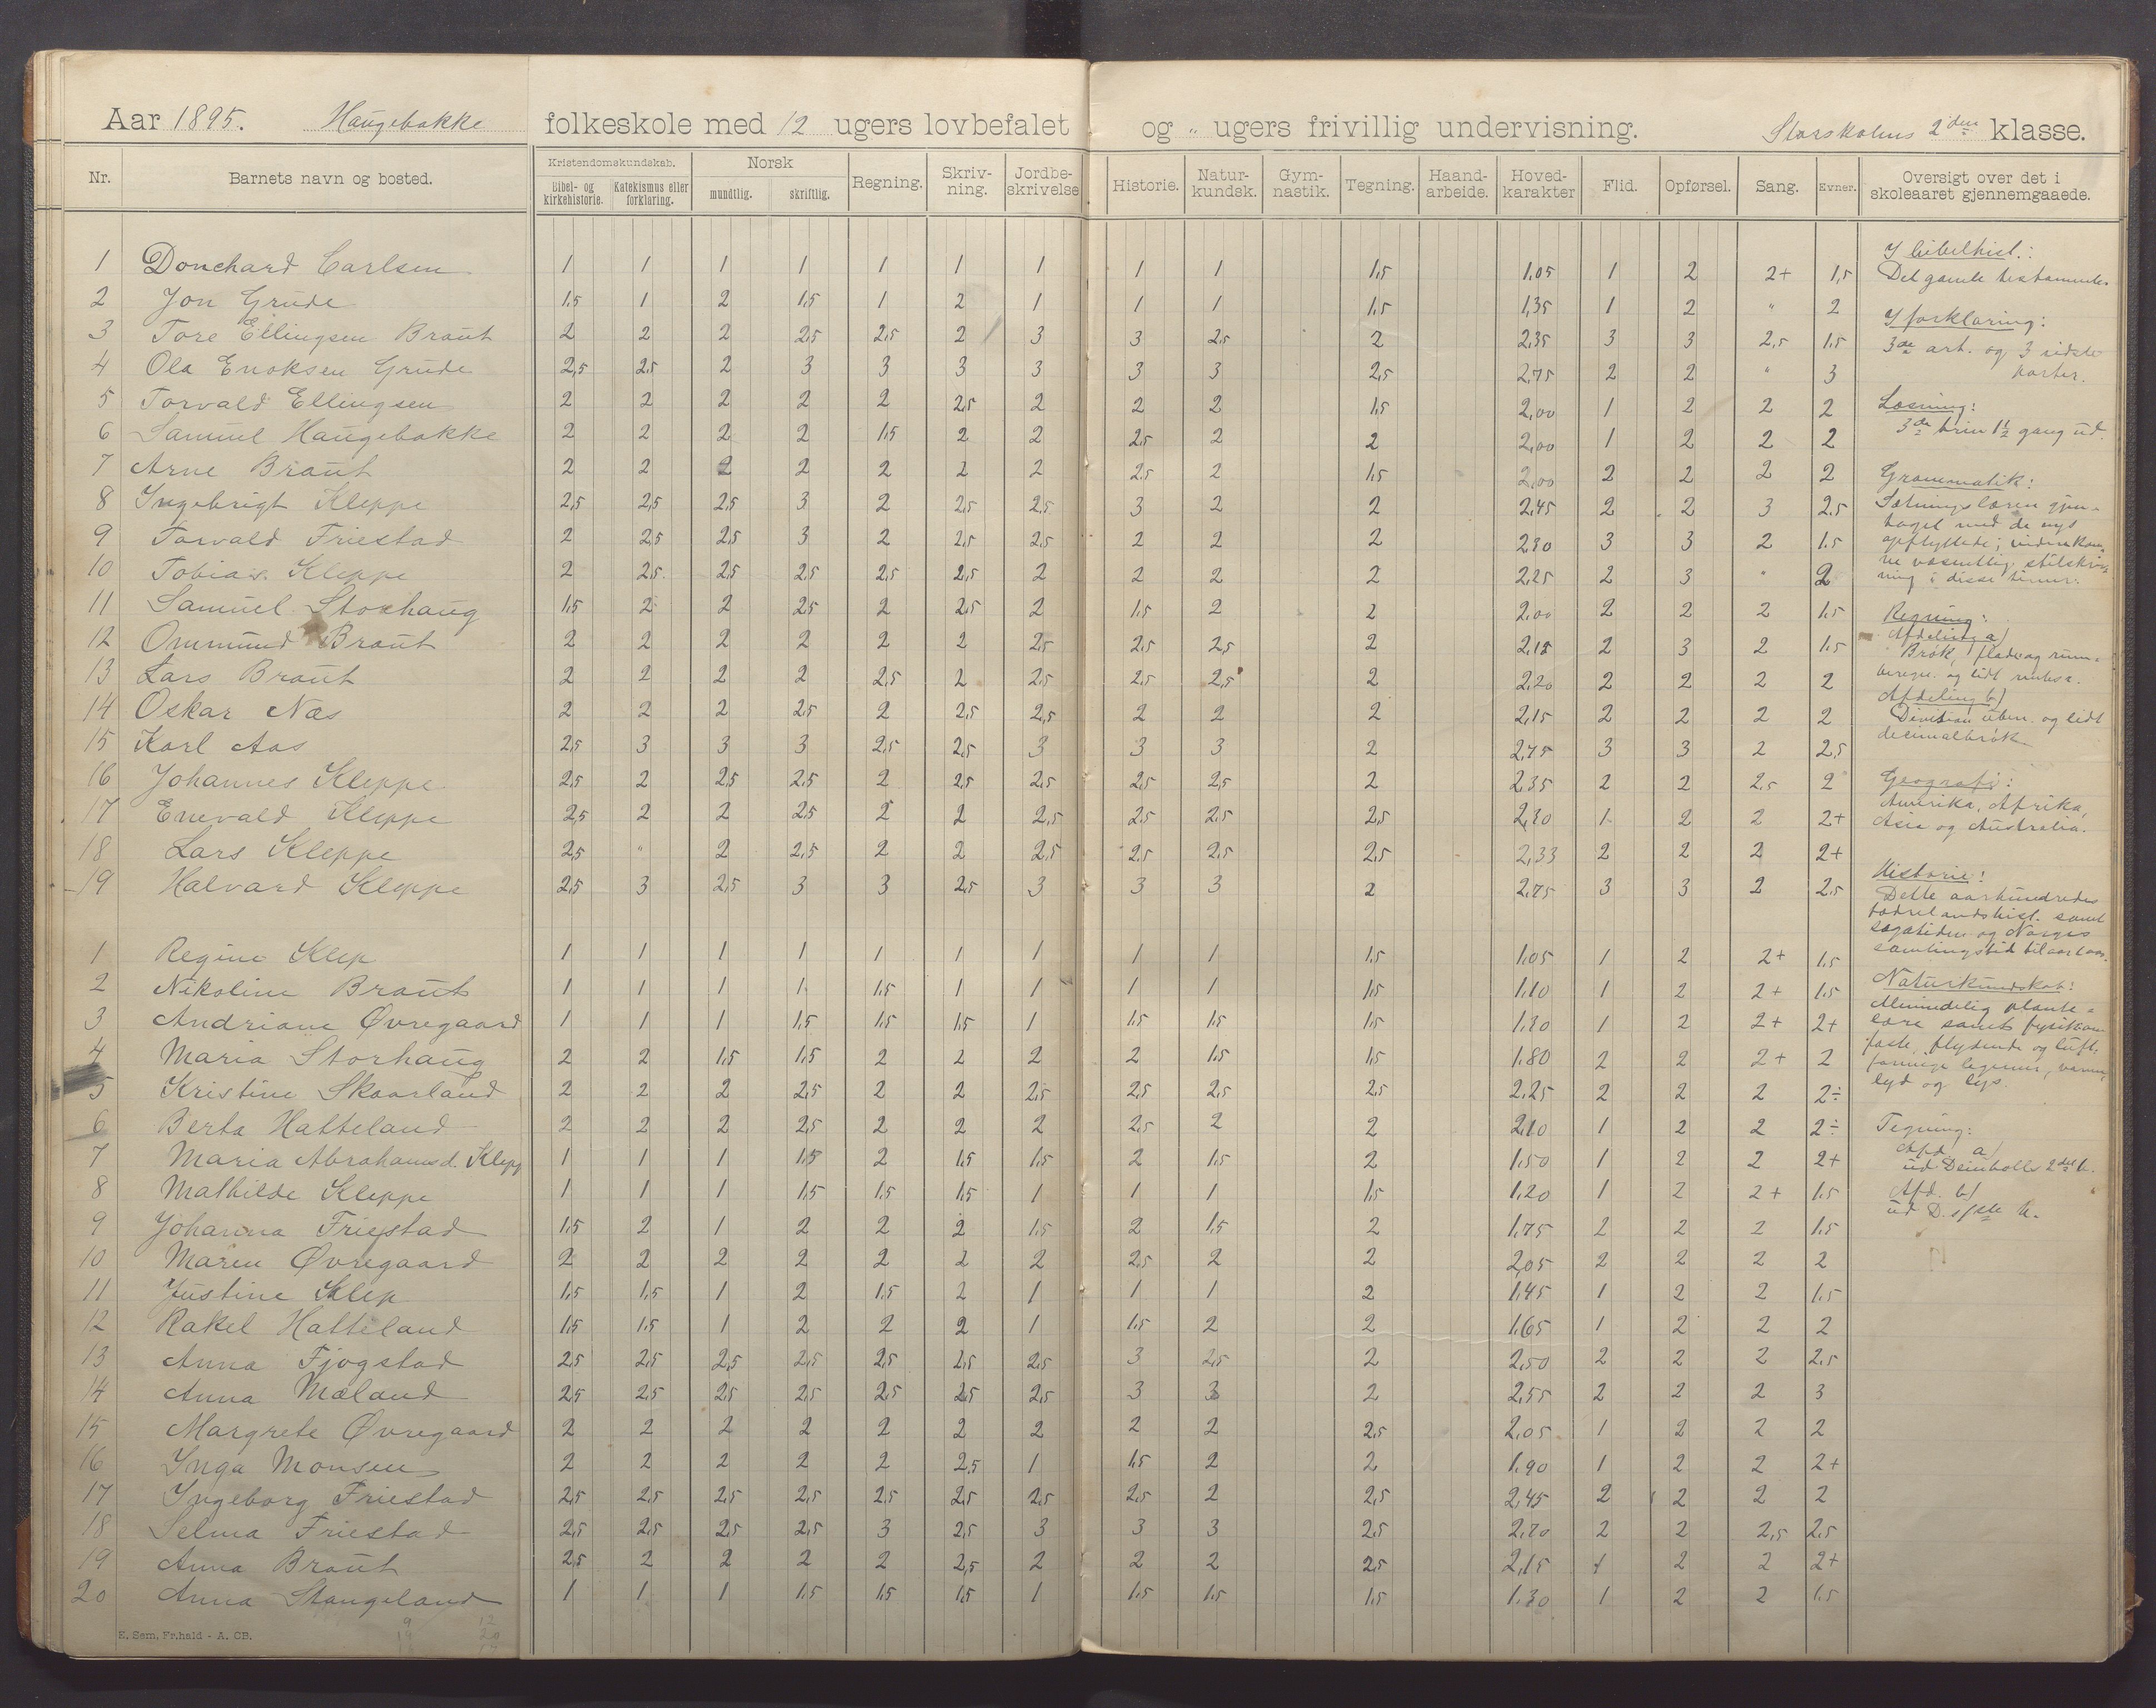 Aar 1895. Haugebakke folkeskole med 12 ugers lovbefalet og " ugers frivillig undervisning. Storskolens 2den klasse.
Nr. Barnets navn og bosted. Kristendomskundskab. Bibel- og kirkehistorie. Katekismus eller forklaring. Norsk mundtlig. skriftlig. Regning. Skrivning. Jordbeskrivelse Historie. Naturkundsk. Gymnastik. Tegning. Haandarbeide. Hovedkarakter Flid. Opførsel. Sang. Evner. Oversigt over det i skoleaaret gjennemgaaede.
1 Donchard Carlsen 1 1 1 1 1 1 1 1 1 1,5 1,05 1 2 2+ 1,5
2 Jon Grude 1,5 1 2 1,5 1 2 1 1 1 1,5 1,35 1 2 " 2
3 Tore Ellingsen Braut 2 2 2 2,5 2,5 2 3 3 2,5 2 2,35 3 3 2,5 1,5
4 Ola Enoksen Grude 2,5 2,5 2 3 3 3 3 3 3 2,5 2,75 2 2 " 3
5 Torvald Ellingsen 2 2 2 2 2 2,5 2 2 2 1,5 2,00 1 2 2 2
6 Samuel Haugebakke 2 2 2 2 1,5 2 2 2,5 2 2 2,00 1 2 2 2
7 Arne Braut 2 2 2 2 2 2 2 2,5 2 1,5 2,00 2 2 2 2
8 Ingebrigt Kleppe 2,5 2,5 2,5 3 2 2,5 2,5 3 2 2 2,45 2 2 3 2,5
9 Torvald Friestad 2 2,5 2,5 3 2 2,5 2,5 2 2 2 2,30 3 3 2 1,5
10 Tobias Kleppe 2 2,5 2,5 2,5 2,5 2,5 2 2 2 2 2,25 2 3 " 2
11 Samuel Storhaug 1,5 2 2 2,5 2 2,5 2 1,5 2 2 2,00 2 2 2 1,5
12 Ommund Braut 2 2 2 2 2 2 2,5 2,5 2,5 2 2,15 2 3 2 1,5
13 Lars Braut 2 2 2 2 2,5 2 2,5 2,5 2,5 2 2,20 2 2 2 2
14 Oskar Næs 2 2 2 2,5 2 2,5 2,5 2 2 2 2,15 2 2 2 2
15 Karl Aas 2,5 3 3 3 2,5 2,5 3 3 3 2 2,75 3 3 2 2,5
16 Johannes Kleppe 2,5 2 2,5 2,5 2 2,5 2,5 2,5 2,5 2 2,35 2 2 2,5 2
17 Enevald Kleppe 2,5 2 2 2,5 2 2 2,5 2,5 2,5 2,5 2,30 1 2 2 2+
18 Lars Kleppe 2,5 " 2 2,5 2 2 2,5 2,5 2,5 2,5 2,33 2 2 2 2+
19 Halvard Kleppe 2,5 3 2,5 3 3 2,5 3 3 3 2 2,75 3 3 2 2,5
1 Regine Klep 1 1 1 1 1 1 1 1 1 1,5 1,05 1 2 2+ 1,5
2 Nikoline Braut 1 1 1 1 1,5 1 1 1 1 1,5 1,10 1 2 2+ 1,5
3 Andriane Øvregaard 1 1 1 1,5 1,5 1,5 1 1,5 1,5 1,5 1,30 1 2 2+ 2+
4 Maria Storhaug 2 2 1,5 1,5 2 2 2 2 1,5 1,5 1,80 2 2 2+ 2
5 Kristine Skaarland 2 2 2 2,5 2 2 2,5 2,5 2,5 2,5 2,25 2 2 2 2÷
6 Berta Hatteland 2 2 2 2,5 2 2 2 2,5 2 2 2,10 1 2 2 2÷
7 Maria Abrahamsd. Klepp 1 1 1 1,5 2 1,5 1,5 2 1,5 2 1,50 1 2 2 2+
8 Mathilde Kleppe 1 1 1 1,5 1,5 1,5 1 1 1 1,5 1,20 1 2 2+ 1,5
9 Johanna Friestad 1,5 2 1 2 2 2 1,5 2 1,5 2 1,75 2 2 2 1,5
10 Maren Øvregaard 2 2 2 2 2 2 2 2,5 2 2 2,05 2 2 2 2
11 Justine Klep 1,5 1,5 1 2 1,5 2 1 1 1 2 1,45 1 2 2 1,5
12 Rakel Hatteland 1,5 1,5 1 2 2 2 1 1,5 2 2 1,65 1 2 2 2
13 Anna Fjogstad 2,5 2,5 2,5 2,5 2,5 2,5 2,5 3 2,5 2 2,50 2 2 2 2,5
14 Anna Mæland 2,5 2,5 2,5 2,5 2,5 2,5 2,5 3 3 2 2,55 2 2 2 3
15 Margrete Øvregaard 2 2 2 2 2 2 2 2 2 2,5 2,05 1 2 2 2
16 Inga Monsen 2 2 2 2 2 2,5 1 1,5 2 2 1,90 1 2 2 2+
17 Ingeborg Friestad 2,5 2,5 2,5 2,5 2,5 2,5 2,5 2,5 2 2,5 2,45 2 2 2 2
18 Selma Friestad 2,5 2,5 2,5 2,5 3 2,5 3 3 3 2,5 2,70 2 2 2,5 2,5
19 Anna Braut 2,5 2 2 2 2 2,5 2 2 2 2,5 2,15 1 2 2 2+
20 Anna Stangeland 1 1 1 1,5 1,5 1,5 1 1,5 1,5 1,5 1,30 1 2 2 1,5
I bibelhist.:
Det gamle testamente.
I forklaring:
3de art. og 3 sidste
parter.
Læsning:
3de trin 1½ gang ud.
Grammatik:
Sætningslæren gjen-
taget med de nys
opflyttede;
ne væsentlig stilskriv-
ning i disse timer.
Regning:
Afdeling a)
Brøk, flade og rum-
beregn. og lidt rentesr.
Afdeling b)
Division og lidt
decimalbrøk
Geografi:
Amerika, Afrika,
Asia og Australia.
Historie:
Dette aarhundredes
fædrelandshist. samt
sagatiden og Norges
samlingstid til
Naturkundskab:
Almindelig plante-
lære samt fysikken
faste, flydende og luft-
formige legemer, varme,
lyd og lys.
Tegning:
Afd. a)
ud 2det h.
Afd. b)
ud D. 1ste h.
E. Sem, Fr.hald - A. CB.
9 12
19 20